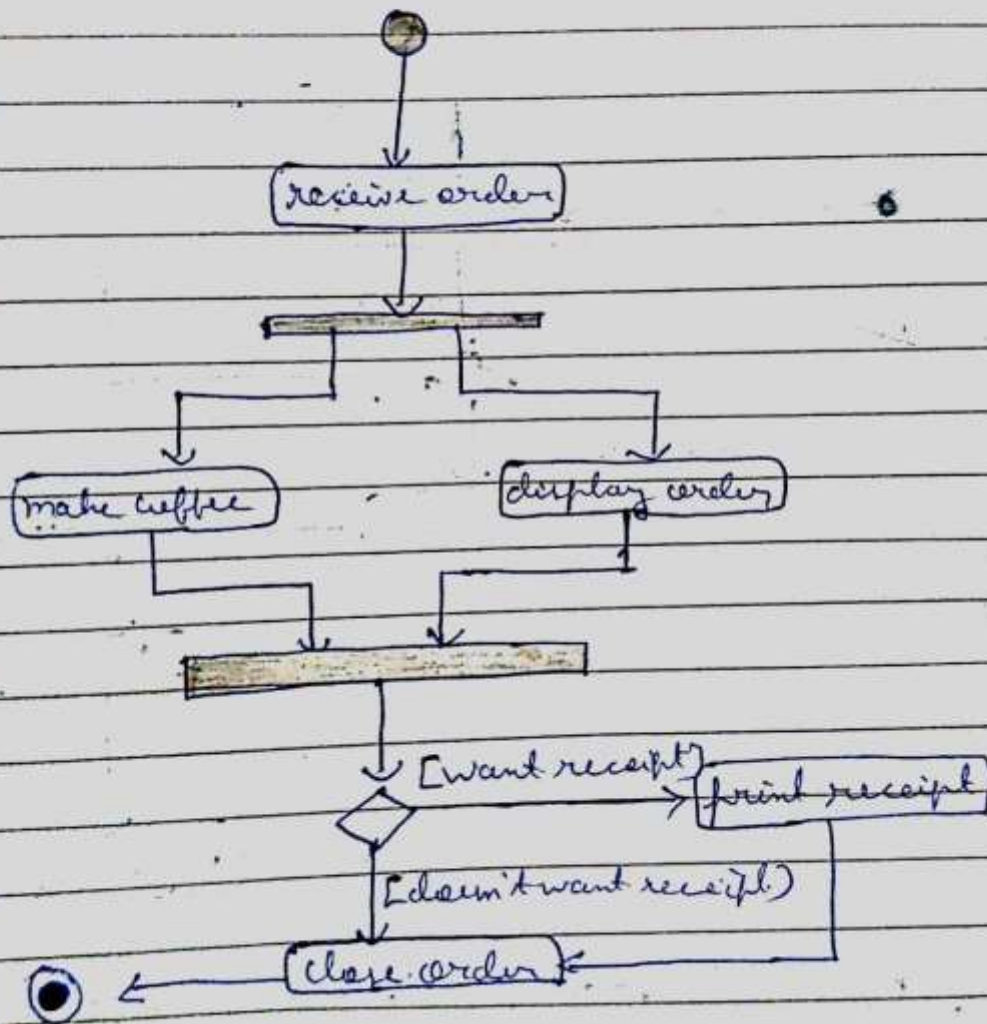 receive order
make coffee
display order
[want receipt]
print receipt
[doesn't want receipt)
close order